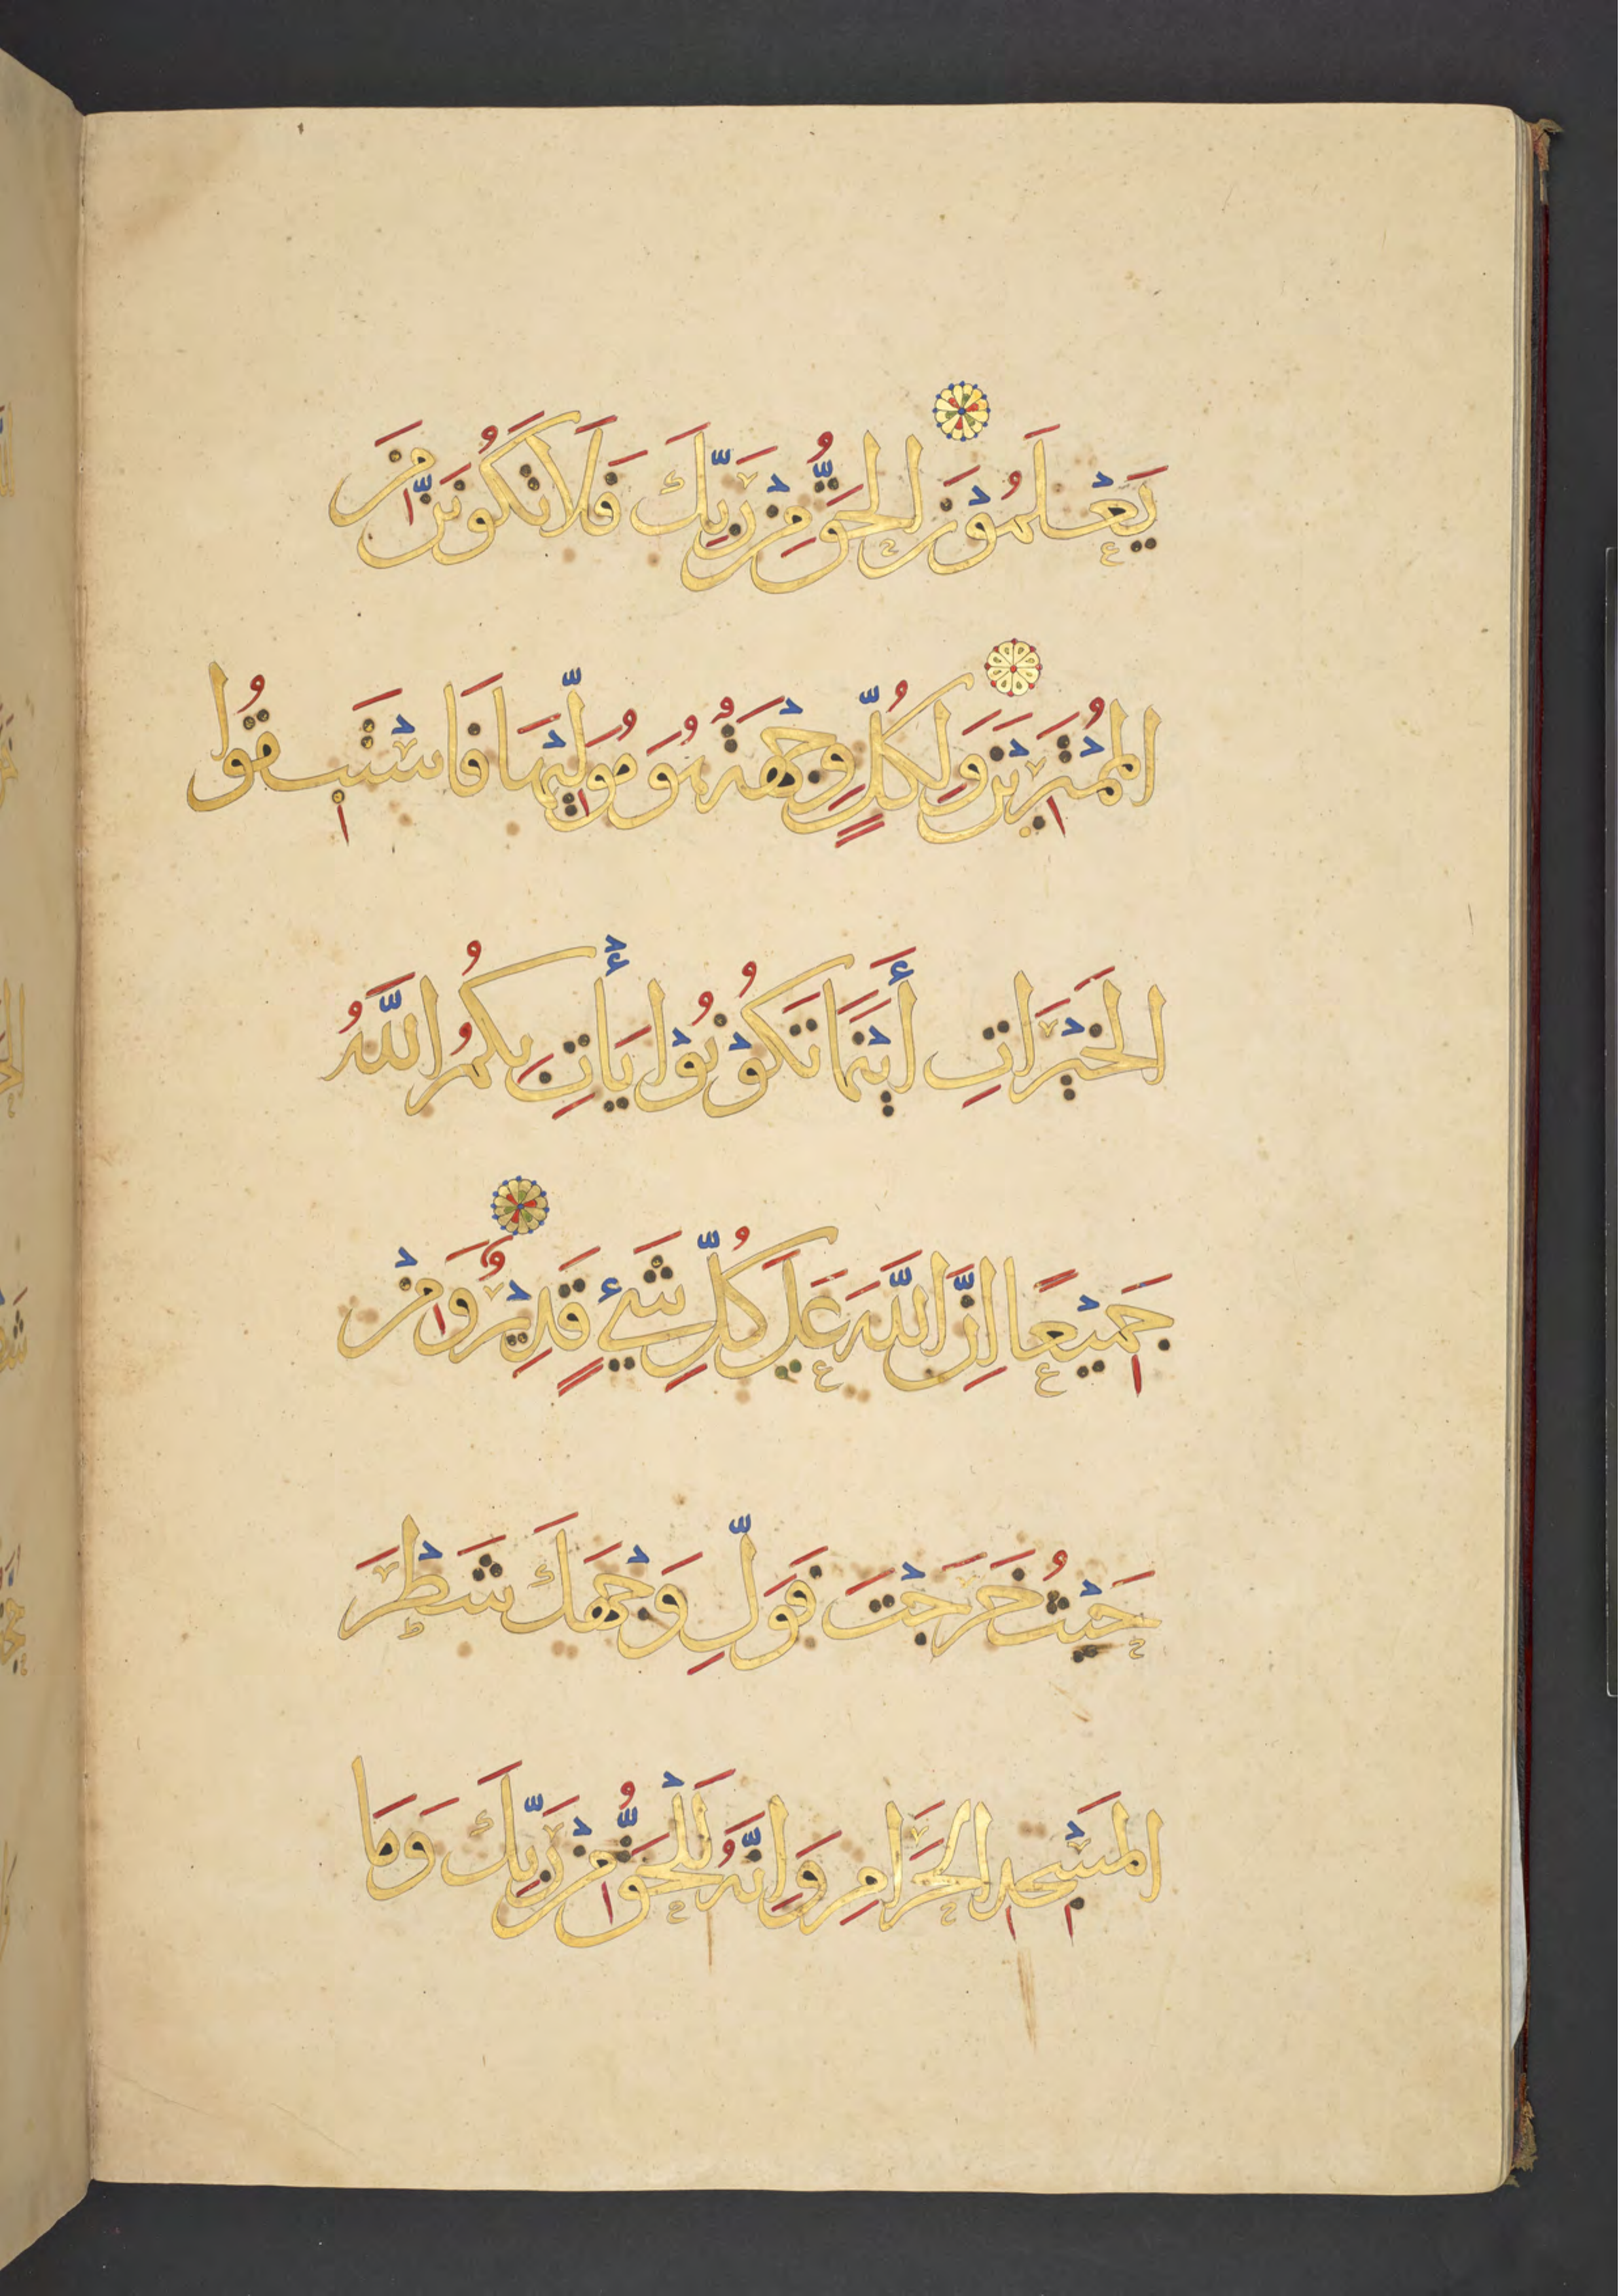 يَعْلَمُوْنَ الحَقُّ مِنْ رَبِّكَ فَلَا تَكُوْنَنَّ مِنَ
المُمْتَرِيْنَ وَلِكُلٍّ وِجْهَةٌ هُوَ مُوَلِّيْهَا فَاسْتَبِقُوا
الخَيْرَاتِ أَيْنَمَا تَكُوْنُوْا يَأْتِ بِكُمُ اللَّهُ
جَمِيْعًا اِنَّ اللَّهَ عَلَى كُلِّ شَيْءٍ قَدِيْرٌ وَمِنْ
حَيْثُ خَرَجْتَ فَوَلِّ وَجْهَكَ شَطْرَ
المَسْجِدِ الحَرَامِ وَاِنَّهُ لَلْحَقُّ مِنْ رَبِّكَ وَمَا